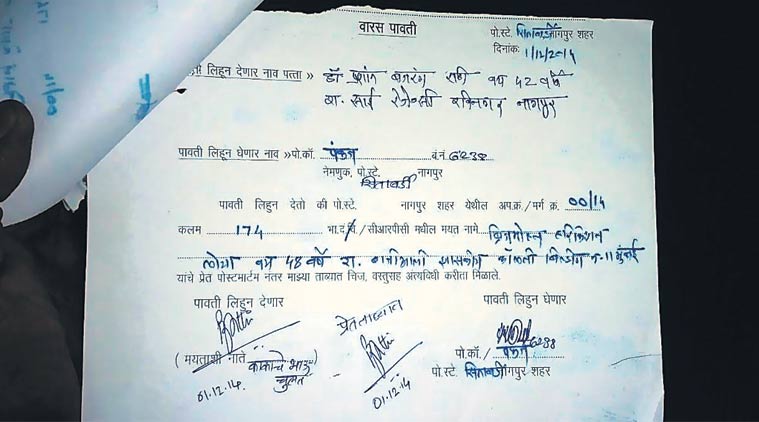 वारस पावती
पो.स्टे. सिताबर्डी नागपूर शहर
दिनांक: 1/12/2014
लिहून देणार नाव पत्ता » डॉ. प्रशांत बजरंग राठी वय 42 वर्षे
रा. साई रेजेन्सी रविनगर नागपूर
पावती लिहून घेणार नाव » पो.कॉ. पंकज ब.नं. 6238
नेमणुक, पो.स्टे. सिताबर्डी नागपूर
पावती लिहून देतो की पो.स्टे. नागपूर शहर येथील अप.क्र./ मर्ग क्र. 00/14
कलम 174 भा.दं.वि. / सीआरपीसी मधील मयत नामे ब्रिजमोहन हरकिशन
लोया वय 48 वर्षे रा. बिल्डींग न-11 मुंबई
यांचे प्रेत पोस्टमार्टम नंतर माझ्या ताब्यात चिज, वस्तुसह अंत्यविधी करीता मिळाले.
पावती लिहून देणार
प्रेत ताब्यात
पावती लिहून घेणार
( मयताशी नाते काकाचे भाऊ )
चुलत
01.12.14
01.12.14
6238
पो.कॉ./ पंकज
पो.स्टे. सिताबर्डी नागपूर शहर